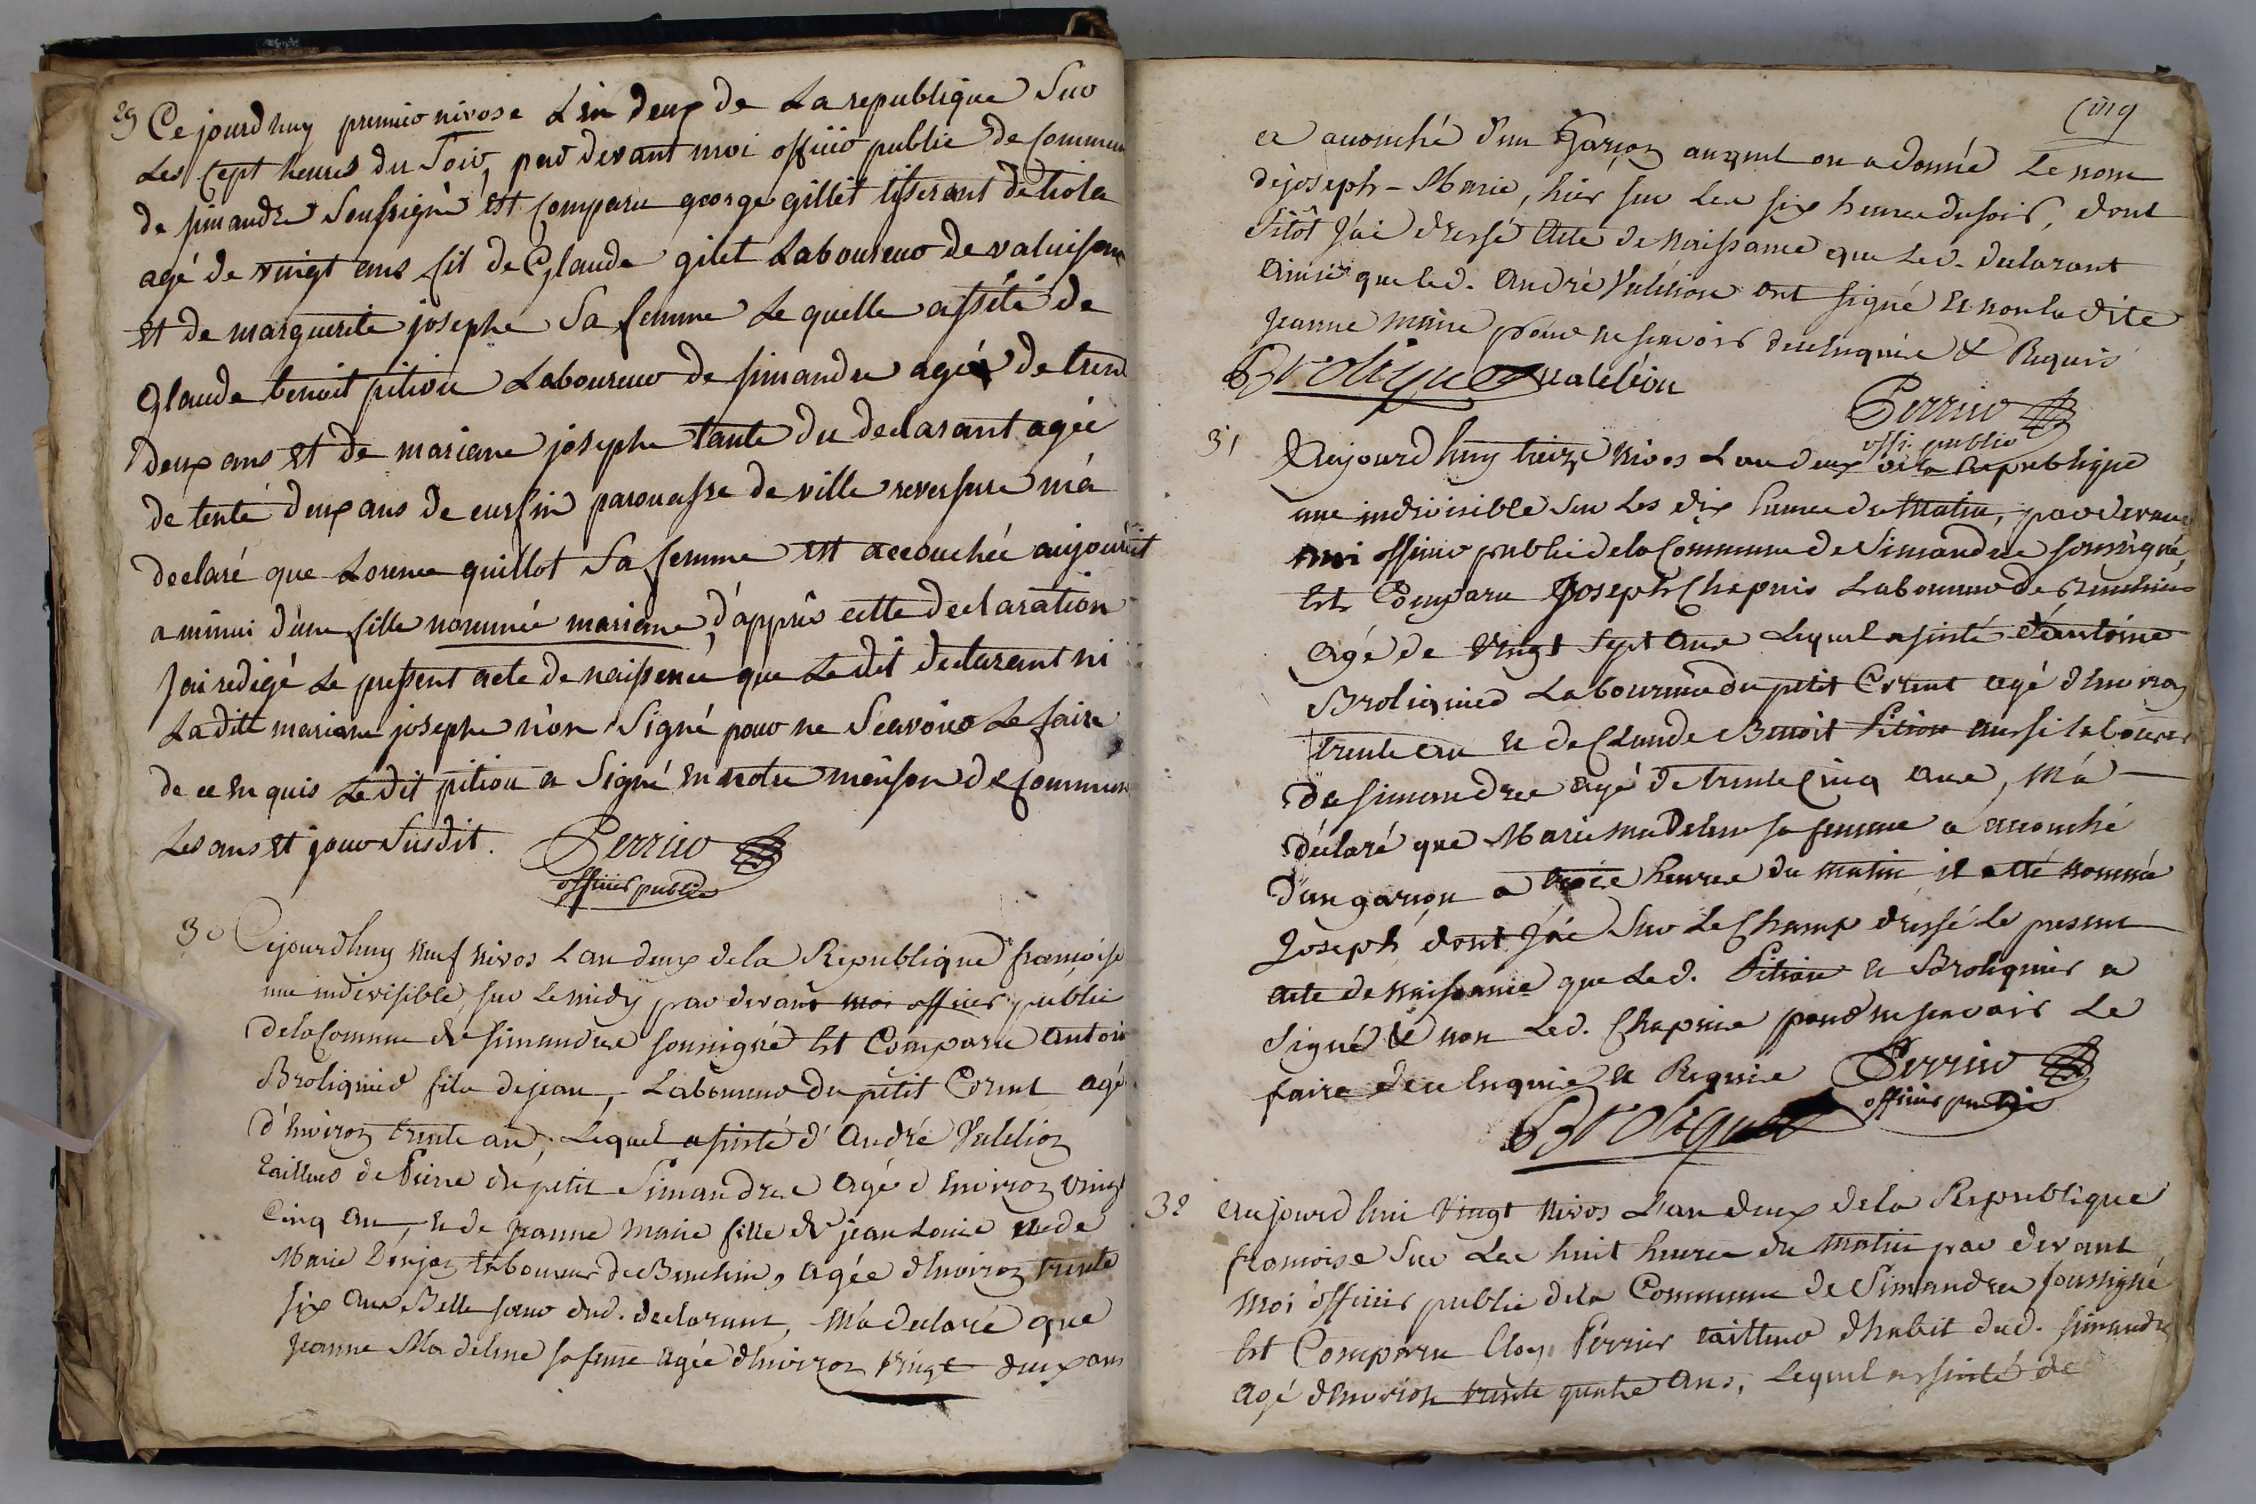 29 Cejourdhuy premier nivose L'an deux de La republique Sur
Les Sept heures du Soir, par devant moi officier public de Commun
de simandre Soussigné est Comparu george gillet tisserant de
agé de vingt ans fil de Glaude gilet Laboureur de
et de marguerite josephe Sa femme Le quelle assité de
Glaude benoit pition Laboureur de simandre agée de trent
deux ans et de mariane josephe tante du declarant agée
de tente deux ans de parouasse de ville reversure m'a
declaré que Lorence guillot Sa femme est accouchée aujourdit
a minui d'une fille nommée mariane, d'apprês cette declaration
J'ai redigé Le pressent acte de naissence que Le dit declarant ni
La ditt mariane josephe n'on Signé pour ne Scavoire Le faire
de ce enquis Le dit pition a Signé en notre meison de Commun
Les ans et jour Susdit. Perrier
officier public
30 Cejourdhuy neuf nivos L'an deux de la Republique francoise
une indivisible sur Le midy par devant moi officier public
dela Comune de simandre soussigné Est Comparu antoin
Broliquier fils de jean, Laboureur du petit Corent agé
d'Environ trente an, Lequel assisté d'André Valelion
tailleur de Pierre du petit Simandre agé d'Environ Vingt
Cinq an, et de jeanne marie fille de jean Louis et de
Marie laboureur de agée d'Environ trente
six ans Belle soeur dud. declarant, M'a declaré que
Jeanne Madeleine sa femme agée d'Environ Vingt deux ans
Cinq
a accouché d'un Garçon auquel on a donné Le nom
de joseph-Marie, hier sur Les six heures du soir, dont
sitôt J'ai dressé Acte de Naissance que Led. declarant
ainsi que led. André Valelion ont signé et non la dite
Jeanne marie pour ne scavoir de ce Enquise & Requis
Broliquier valelion
Perrier
offi. public
31 Aujourdhuy treize Nivos L'an deux de la Republique
une indivisible sur Les dix heures du Matin, par devant
moi officier public dela Commune de Simandre soussigné,
Est Comparu Joseph Chapuis Laboureur de
Agé de Vingt Sept Ans Lequel assisté d'antoine
Broliquier Laboureur du petit Corent agé d'Environ
trente an et de Claude Benoit Pition aussi laboureur
de simandre agé de trente Cinq ans, M'a
déclaré que Marie Madeleine sa femme a accouché
d'un garçon a trois heures du matin il a été nommé
Joseph, dont J'ai Sur Le Champ dressé Le present
acte de Naissance que Led. Pition et Broliquier a
signé et non Led. Chapuis pour ne scavoir Le
faire de ce Enquis et Requis Perrier
officier public
Broliquier
32 Aujourdhui Vingt Nivos L'an deux dela Republique
francoise Sur Les huit heures du Matin par devant
Moi officier public dela Commune de Simandre soussigné
Est Comparu Perrier tailleur d'habit dud. simandre
Agé d'Environ trente quatre Ans, Lequel assisté de